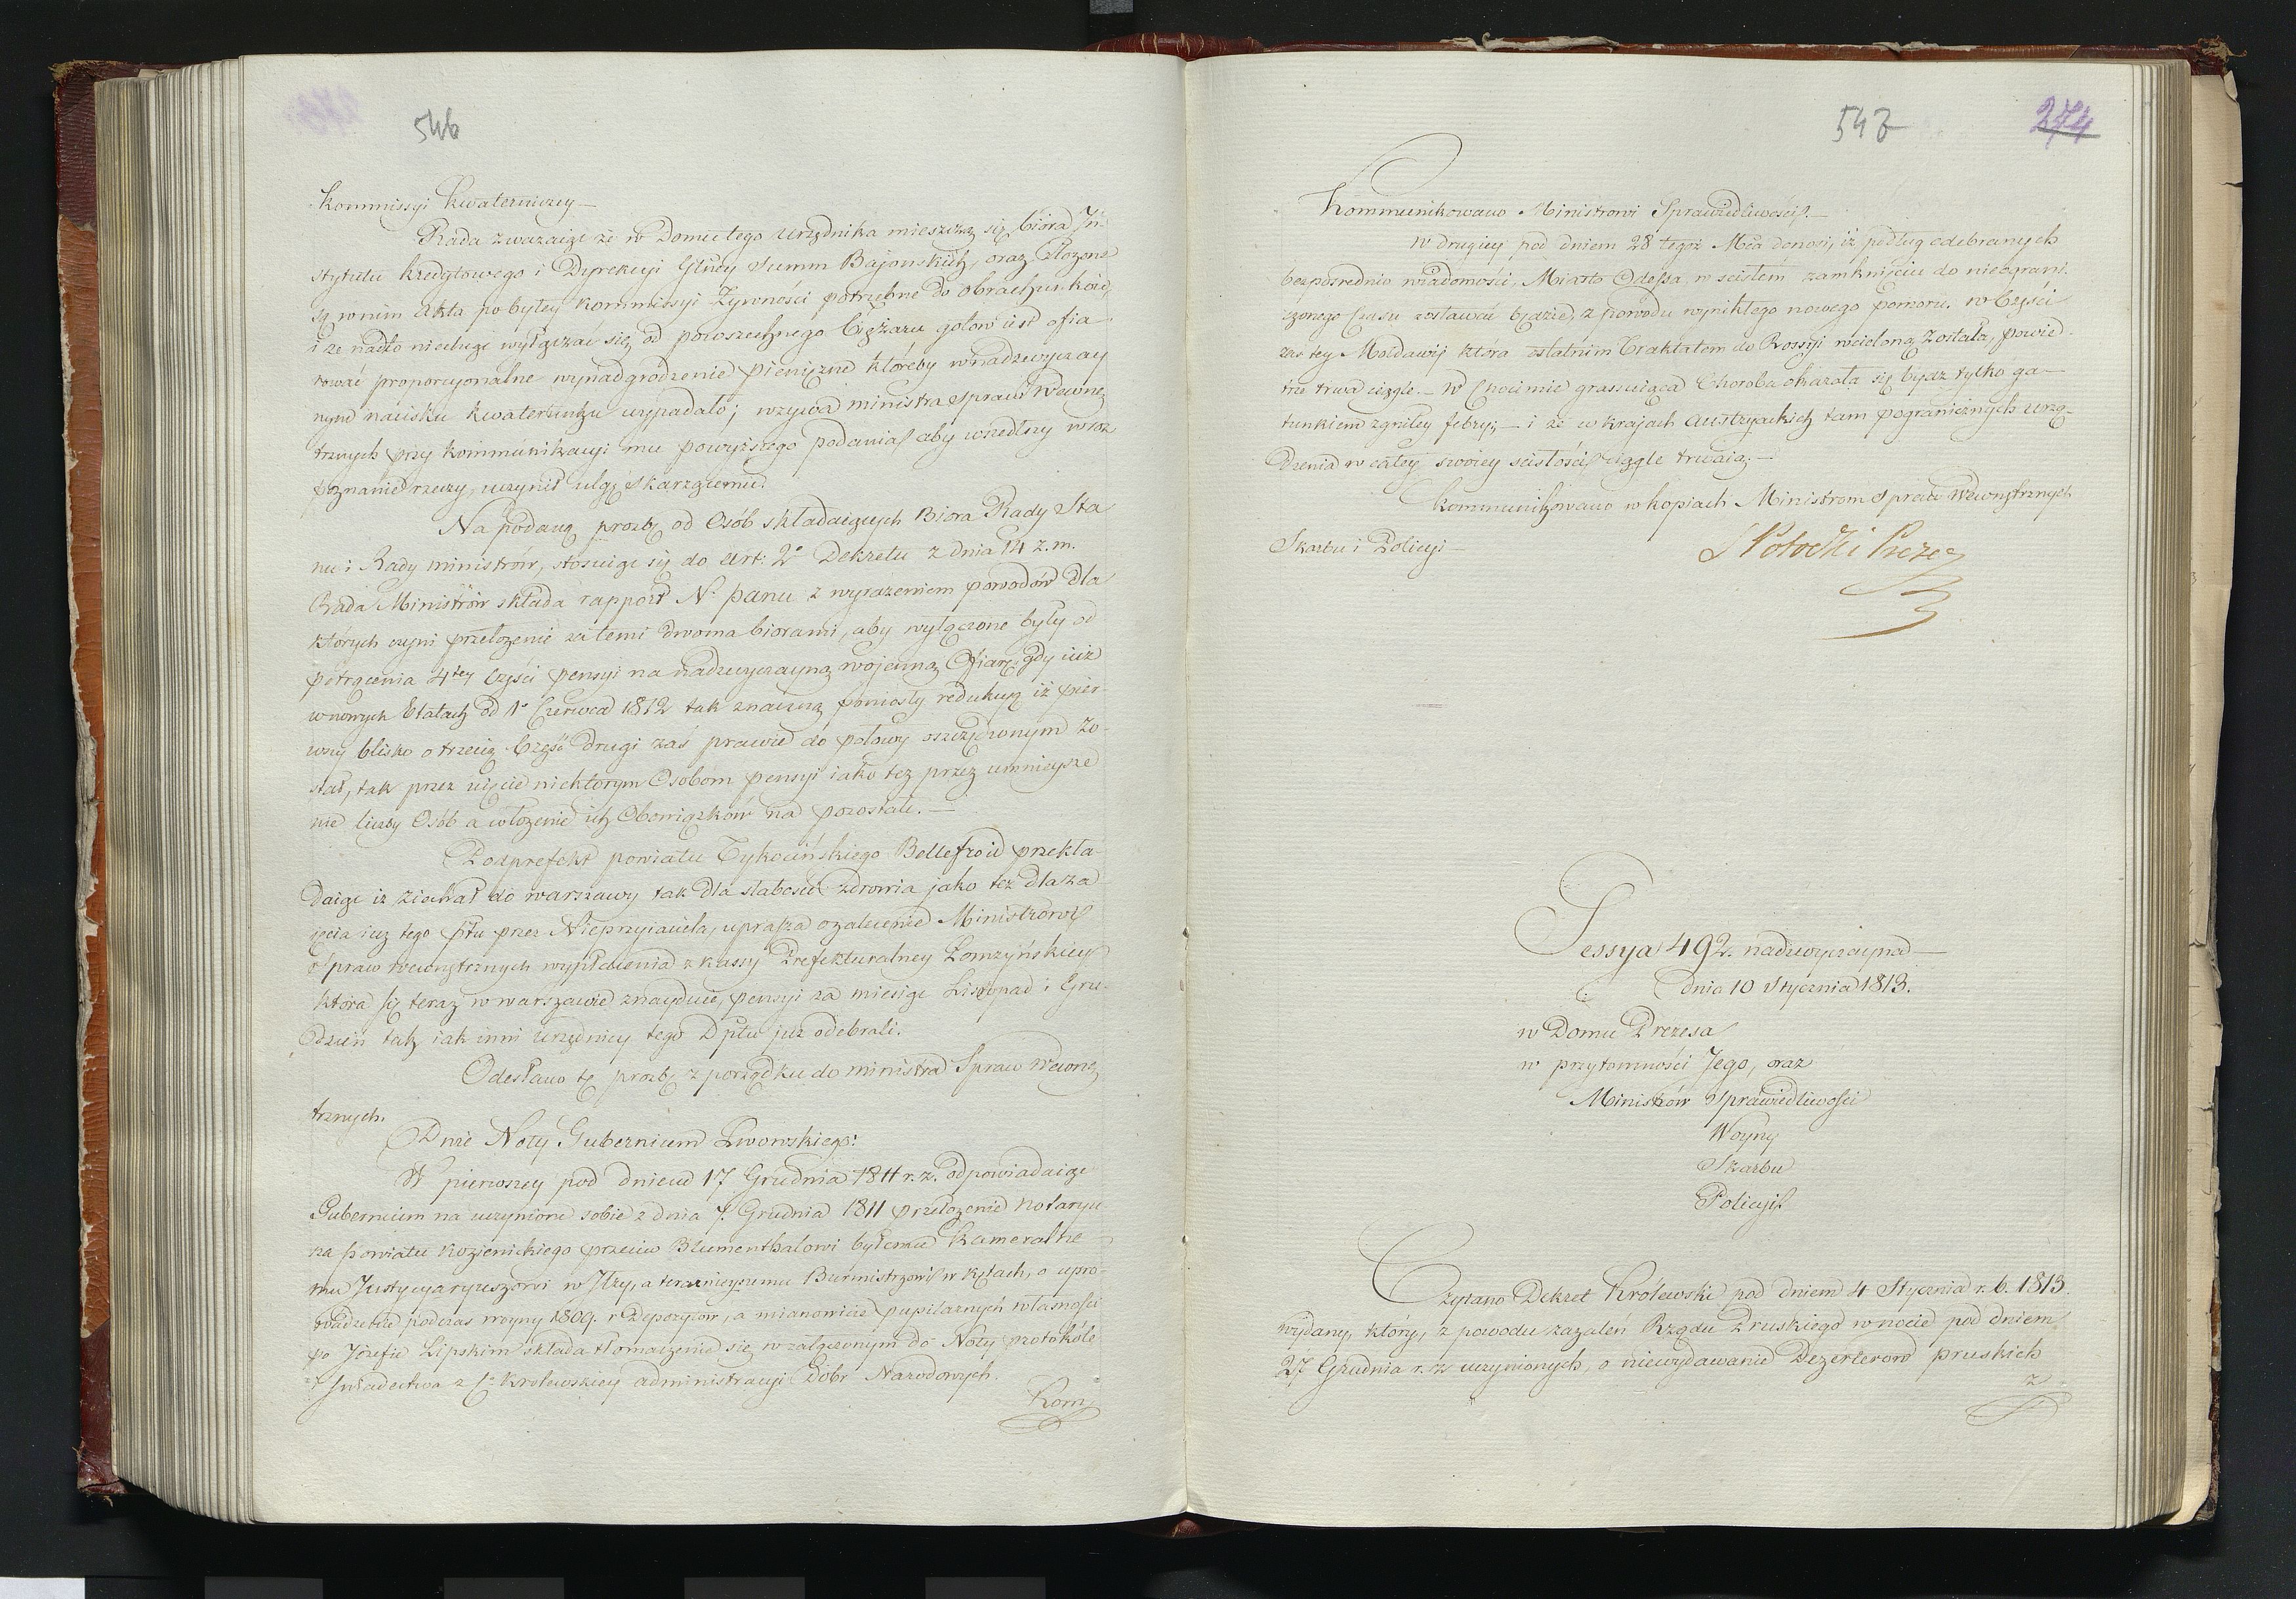 546
Kommissyi Kwaterniczey —
Rada zwazaiąc że w Domu tego urzędnika mieszczą się biora In-
stytutu kredytowego i Dyrekcyi Głney Summ Bajonskich, oraz złożone
są w nim Akta po byłey Kommissyi Żywności potrzebne do obrachunków,
i że nadto niechcąc wyłączać się od powszechnego Ciężaru gotów iest ofia
rować proporcyonalne wynadgrodzenie pieniężne któreby w nadzwyczay
nym nacisku kwaterunku wypadało; wzywa ministra Spraw Wewnę
trznych przy kommunikacyi mu powyższego podania aby wszedłszy w roz
poznanie rzeczy, uczynił ulgę skarzącemu.
Na podaną prozbę od Osób składaiących Biora Rady Sta
nu i Rady ministrów, stosuiąc się do art: 2o Dekretu z dnia 14 z.m.
Rada Ministrów składa rapport N. panu z wyrażeniem powodów dla
których czyni przełożenie za temi dwoma biorami, aby wyłączone były od
potrącenia 4tey Części pensyi na nadzwyczayną wojenną Ofiarę, gdy iuż
w nowych Etatach od 1o Czerwca 1812 tak znaczną poniosły redukcyą iż pier-
wszy blisko o trzecią Część drugi zaś prawie do połowy oszczędzonym zo-
stał, tak przez ujęcie niektórym Osobom pensyi iako też przez umnieysze
nie liczby Osób a włożenie ich Obowiązków na pozostałe. —
Podprefekt powiatu Tykocińskiego Bellefroid przekła-
daiąc iż ziechał do warszawy tak dla słabości zdrowia jako też dla za
ięcia iuż tego pttu przez Nieprzyiaciela, uprasza o zalecenie Ministrowi
Spraw wewnętrznych wypłacenia z kassy Prefekturalney Łomżyńskiey
która się teraz w warszawie znayduie, pensyi za miesiąc Listopad i Gru-
dzień tak, iak inni urzędnicy tego Dpttu już odebrali.
Odesłano tę prozbę z porządku do ministra Spraw Wewnę
trznych.
Dwie Noty Gubernium Lwowskiego:
W pierwszey pod dniem 17 Grudnia 1811 r.z. odpowiadaiąc
Gubernium na uczynione sobie z dnia 7. Grudnia 1811 przełożenie notaryu
sza powiatu Kozienickiego przeciw Blumenthalowi byłemu Kameralne
mu Justycyaryuszowi w Iłży, a teraznieyszemu Burmistrzowi w Kętach, o upro-
wadzenie podczas woyny 1809. r. Depozytów, a mianowicie pupilarnych własności
po Józefie Lipskim składa tłomaczenie się w załączonym do Noty protokóle
i świadectwa z C. Krolewskiey administracyi Dóbr Narodowych.
Kom
547 274
Kommunikowano Ministrowi Sprawiedliwości. —
W drugiey pod dniem 28 tegoż Mca donosi, iż podług odebranych
bezposrednio wiadomości, Miasto Odessa w scisłem zamknięciu do nieograni-
czonego Czasu zostawać będzie z powodu wynikłego nowego pomoru. w Części
zaś tey Mołdawij która ostatnim Traktatem do Rossyi wcieloną została, powie-
trze trwa ciągle. — W Chocimie grassuiąca Choroba okazała się bydz tylko ga-
tunkiem zgniłey febry; — i że w krajach Austryackich tam pogranicznych urzą-
dzenia w całey swoiey scisłości ciągle trwaią. —
Kommunikowano w kopiach Ministrom Spraw Wewnętrznych
Skarbu i Policyi —
S Potocki Prezes
Sessya 492. nadzwyczayna —
Dnia 10 Stycznia 1813.
w Domu Prezesa
w przytomności Jego, oraz
Ministrów Sprawiedliwości
Woyny
Skarbu
Policyi
Czytano Dekret Królewski pod dniem 4 Stycznia r. b. 1813.
wydany, który, z powodu zażaleń Rządu Pruskiego w nocie pod dniem
27 Grudnia r. z. uczynionych, o niewydawanie Dezerterow pruskich
z